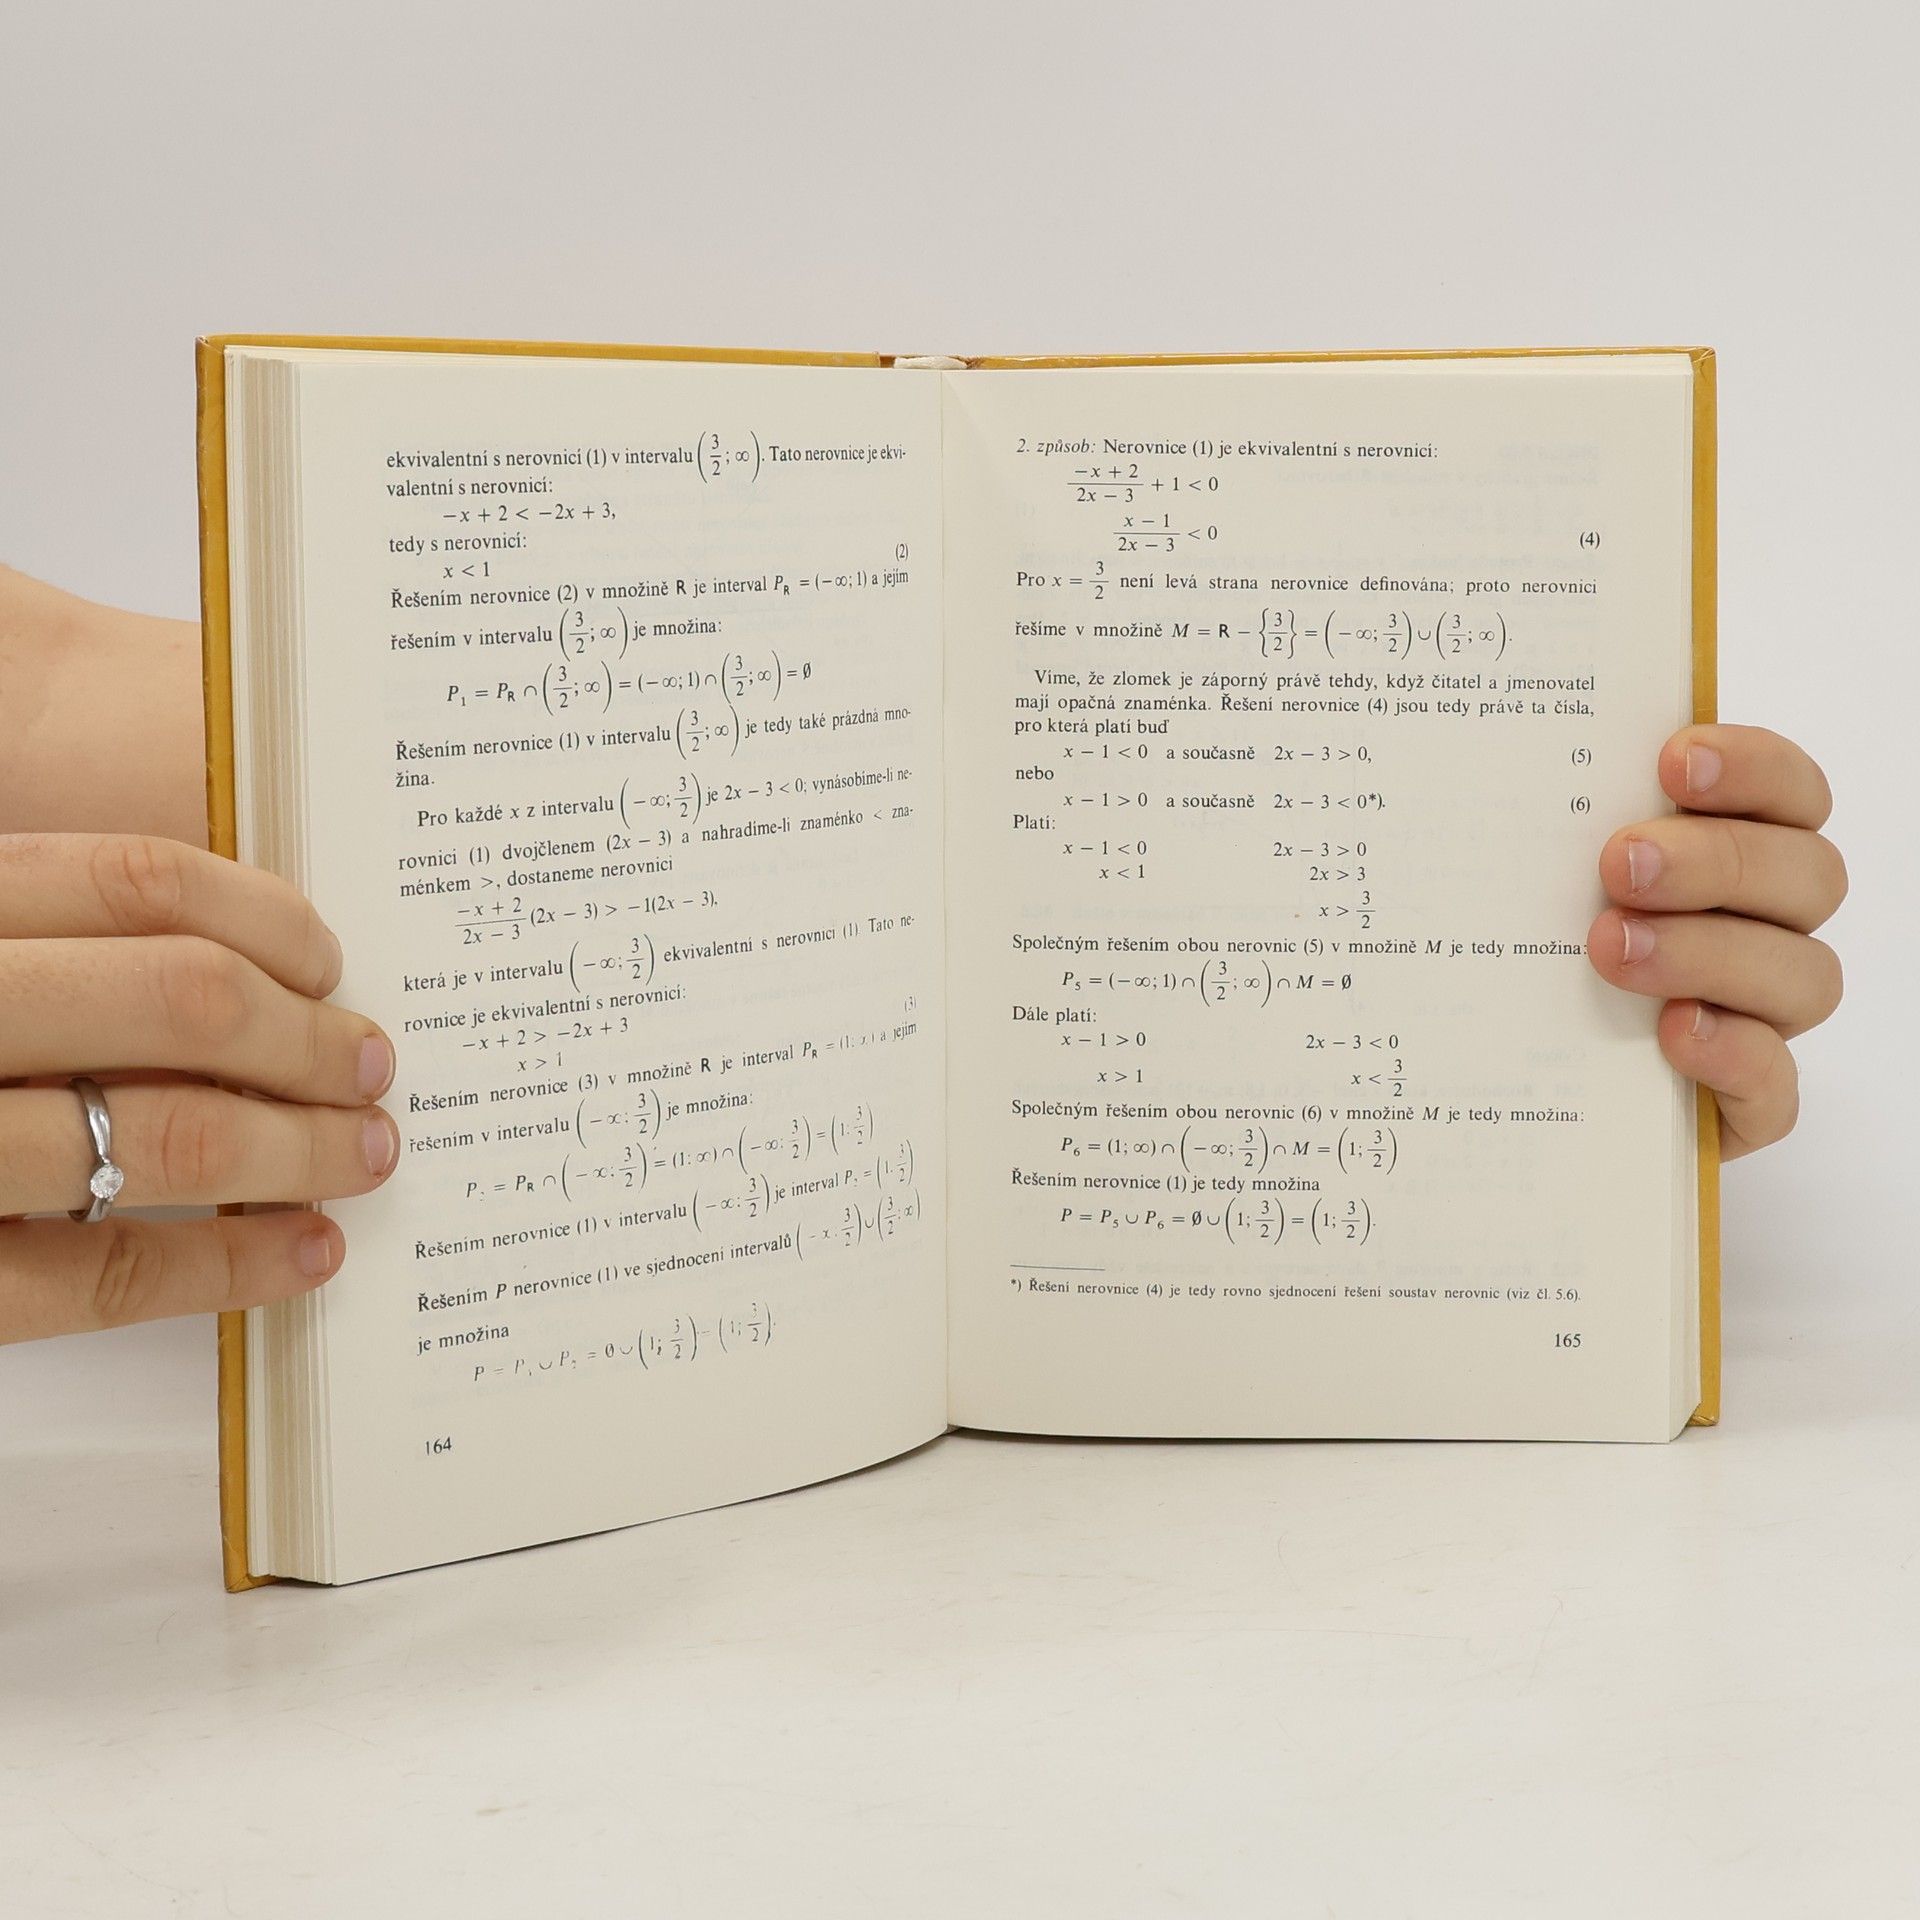 ekvivalentní s nerovnicí (1) v intervalu (3/2; ∞). Tato nerovnice je ekvi-
valentní s nerovnicí:
−x + 2 < −2x + 3,
tedy s nerovnicí:
x < 1 (2)
Řešením nerovnice (2) v množině R je interval P_R = (−∞; 1) a jejím
řešením v intervalu (3/2; ∞) je množina:
P₁ = P_R ∩ (3/2; ∞) = (−∞; 1) ∩ (3/2; ∞) = ∅
Řešením nerovnice (1) v intervalu (3/2; ∞) je tedy také prázdná mno-
žina.
Pro každé x z intervalu (−∞; 3/2) je 2x − 3 < 0; vynásobíme-li ne-
rovnici (1) dvojčlenem (2x − 3) a nahradíme-li znaménko < zna-
ménkem >, dostaneme nerovnici
(−x + 2)/(2x − 3) (2x − 3) > −1(2x − 3),
která je v intervalu (−∞; 3/2) ekvivalentní s nerovnicí (1). Tato ne-
rovnice je ekvivalentní s nerovnicí:
−x + 2 > −2x + 3
x > 1 (3)
Řešením nerovnice (3) v množině R je interval P_R = (1; ∞) a jejím
řešením v intervalu (−∞; 3/2) je množina:
P₂ = P_R ∩ (−∞; 3/2) = (1; ∞) ∩ (−∞; 3/2) = (1; 3/2)
Řešením nerovnice (1) v intervalu (−∞; 3/2) je interval P₂ = (1; 3/2)
Řešením P nerovnice (1) ve sjednocení intervalů (−∞; 3/2) ∪ (3/2; ∞)
je množina
P = P₁ ∪ P₂ = ∅ ∪ (1; 3/2) = (1; 3/2).
164
2. způsob: Nerovnice (1) je ekvivalentní s nerovnicí:
(−x + 2)/(2x − 3) + 1 < 0
(x − 1)/(2x − 3) < 0 (4)
Pro x = 3/2 není levá strana nerovnice definována; proto nerovnici
řešíme v množině M = R − {3/2} = (−∞; 3/2) ∪ (3/2; ∞).
Víme, že zlomek je záporný právě tehdy, když čitatel a jmenovatel
mají opačná znaménka. Řešení nerovnice (4) jsou tedy právě ta čísla,
pro která platí buď
x − 1 < 0 a současně 2x − 3 > 0, (5)
nebo
x − 1 > 0 a současně 2x − 3 < 0*). (6)
Platí:
x − 1 < 0 2x − 3 > 0
x < 1 2x > 3
x > 3/2
Společným řešením obou nerovnic (5) v množině M je tedy množina:
P₅ = (−∞; 1) ∩ (3/2; ∞) ∩ M = ∅
Dále platí:
x − 1 > 0 2x − 3 < 0
x > 1 x < 3/2
Společným řešením obou nerovnic (6) v množině M je tedy množina:
P₆ = (1; ∞) ∩ (−∞; 3/2) ∩ M = (1; 3/2)
Řešením nerovnice (1) je tedy množina
P = P₅ ∪ P₆ = ∅ ∪ (1; 3/2) = (1; 3/2).
*) Řešení nerovnice (4) je tedy rovno sjednocení řešení soustav nerovnic (viz čl. 5.6).
165